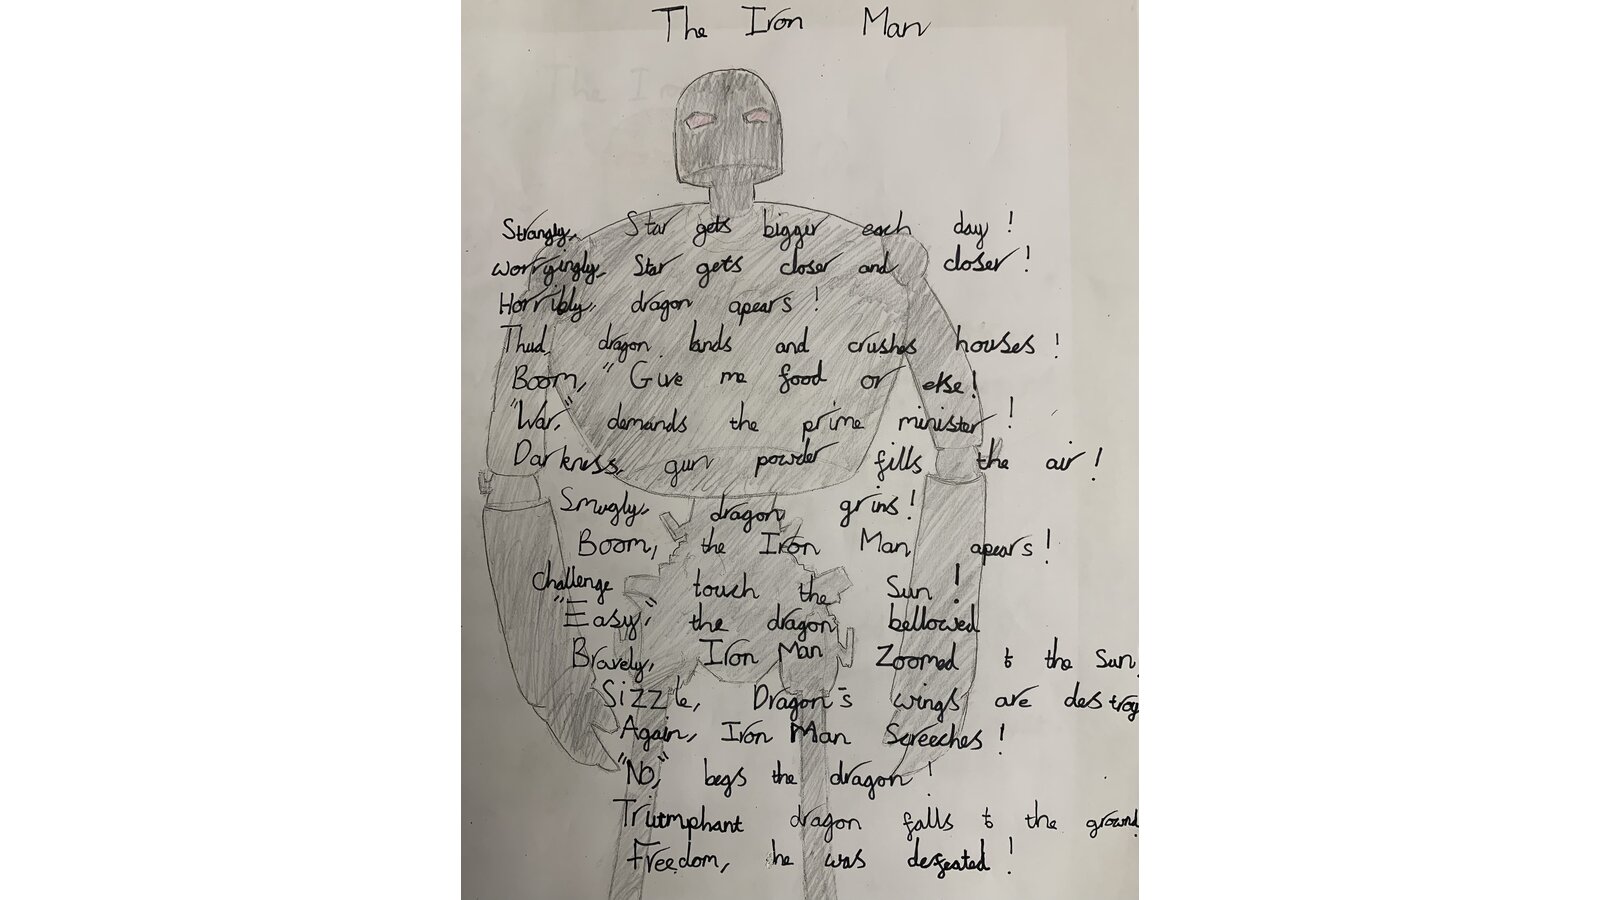 The Iron Man
Strangly, Star gets bigger each day!
worryingly, Star gets closer and closer!
Horribly, dragon apears!
Thud, dragon lands and crushes houses!
Boom, "Give me food or else!
"War," demands the prime minister!
Darkness, gun powder fills the air!
Smugly, dragon grins!
Boom, the Iron Man apears!
Challenge touch the Sun!
"Easy," the dragon bellowed
Bravely, Iron Man Zoomed to the Sun
Sizzle, Dragon's wings are destroy
Again, Iron Man Screeches!
"No," begs the dragon!
Triumphant dragon falls to the ground
Freedom, he was defeated!